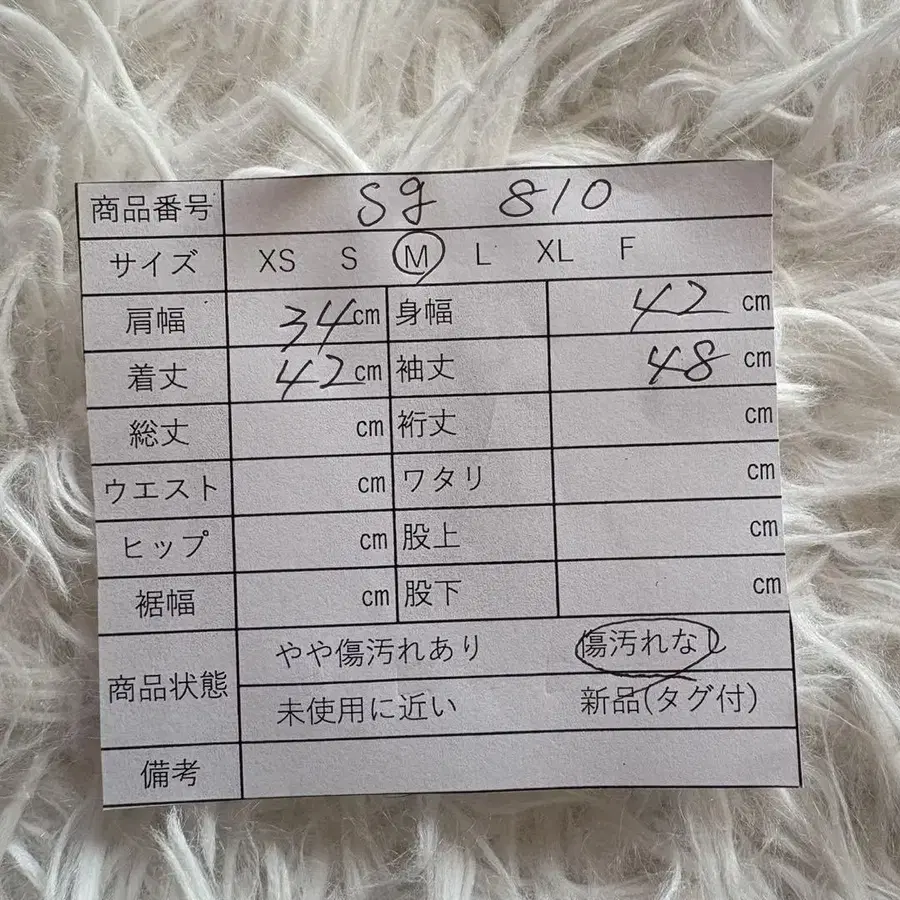 商品番号 sg 810
サイズ XS S M L XL F
肩幅 34cm 身幅 42 cm
着丈 42cm 袖丈 48 cm
総丈 cm 裄丈 cm
ウエスト cm ワタリ cm
ヒップ cm 股上 cm
裾幅 cm 股下 cm
商品状態 やや傷汚れあり 傷汚れなし
未使用に近い 新品(タグ付)
備考